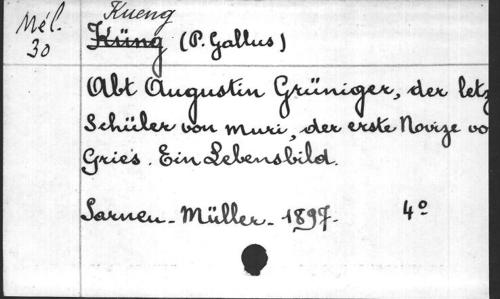 Mél.
30
Kueng
Küng (P. Gallus)
Abt Augustin Grüniger, der letz
Schüler von Muri, der erste Novize vo
Gries. Ein Lebensbild.
Sarnen - Müller - 1897.
4º